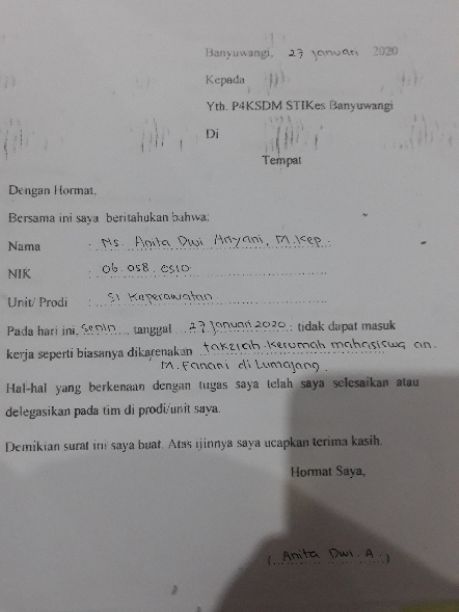 Banyuwangi, 27 Januari 2020
Kepada
Yth. P4KSDM STIKes Banyuwangi
Di
Tempat
Dengan Hormat,
Bersama ini saya beritahukan bahwa:
Nama : Ns. Anita Dwi Ariyani, M.Kep.
NIK : 06.058.0510
Unit/ Prodi : S1 Keperawatan
Pada hari ini, Senin tanggal 27 Januari 2020 : tidak dapat masuk
kerja seperti biasanya dikarenakan takziah kerumah mahasiswa an.
M. Fanani di Lumajang.
Hal-hal yang berkenaan dengan tugas saya telah saya selesaikan atau
delegasikan pada tim di prodi/unit saya.
Demikian surat ini saya buat. Atas ijinnya saya ucapkan terima kasih.
Hormat Saya,
( Anita Dwi. A. )